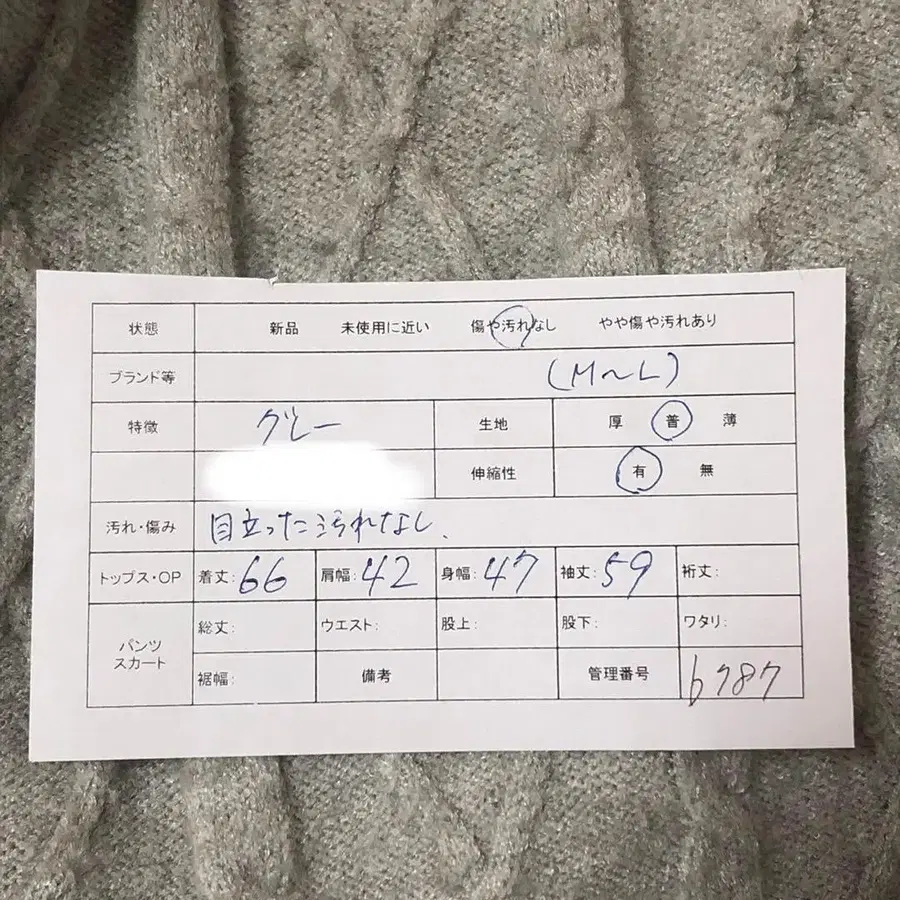 状態 新品 未使用に近い 傷や汚れなし やや傷や汚れあり
ブランド等 (M~L)
特徴 グレー 生地 厚 普 薄
伸縮性 有 無
汚れ・傷み 目立った汚れなし、
トップス・OP 着丈:66 肩幅:42 身幅:47 袖丈:59 裄丈:
パンツ
スカート
総丈: ウエスト: 股上: 股下: ワタリ:
裾幅: 備考 管理番号 b787